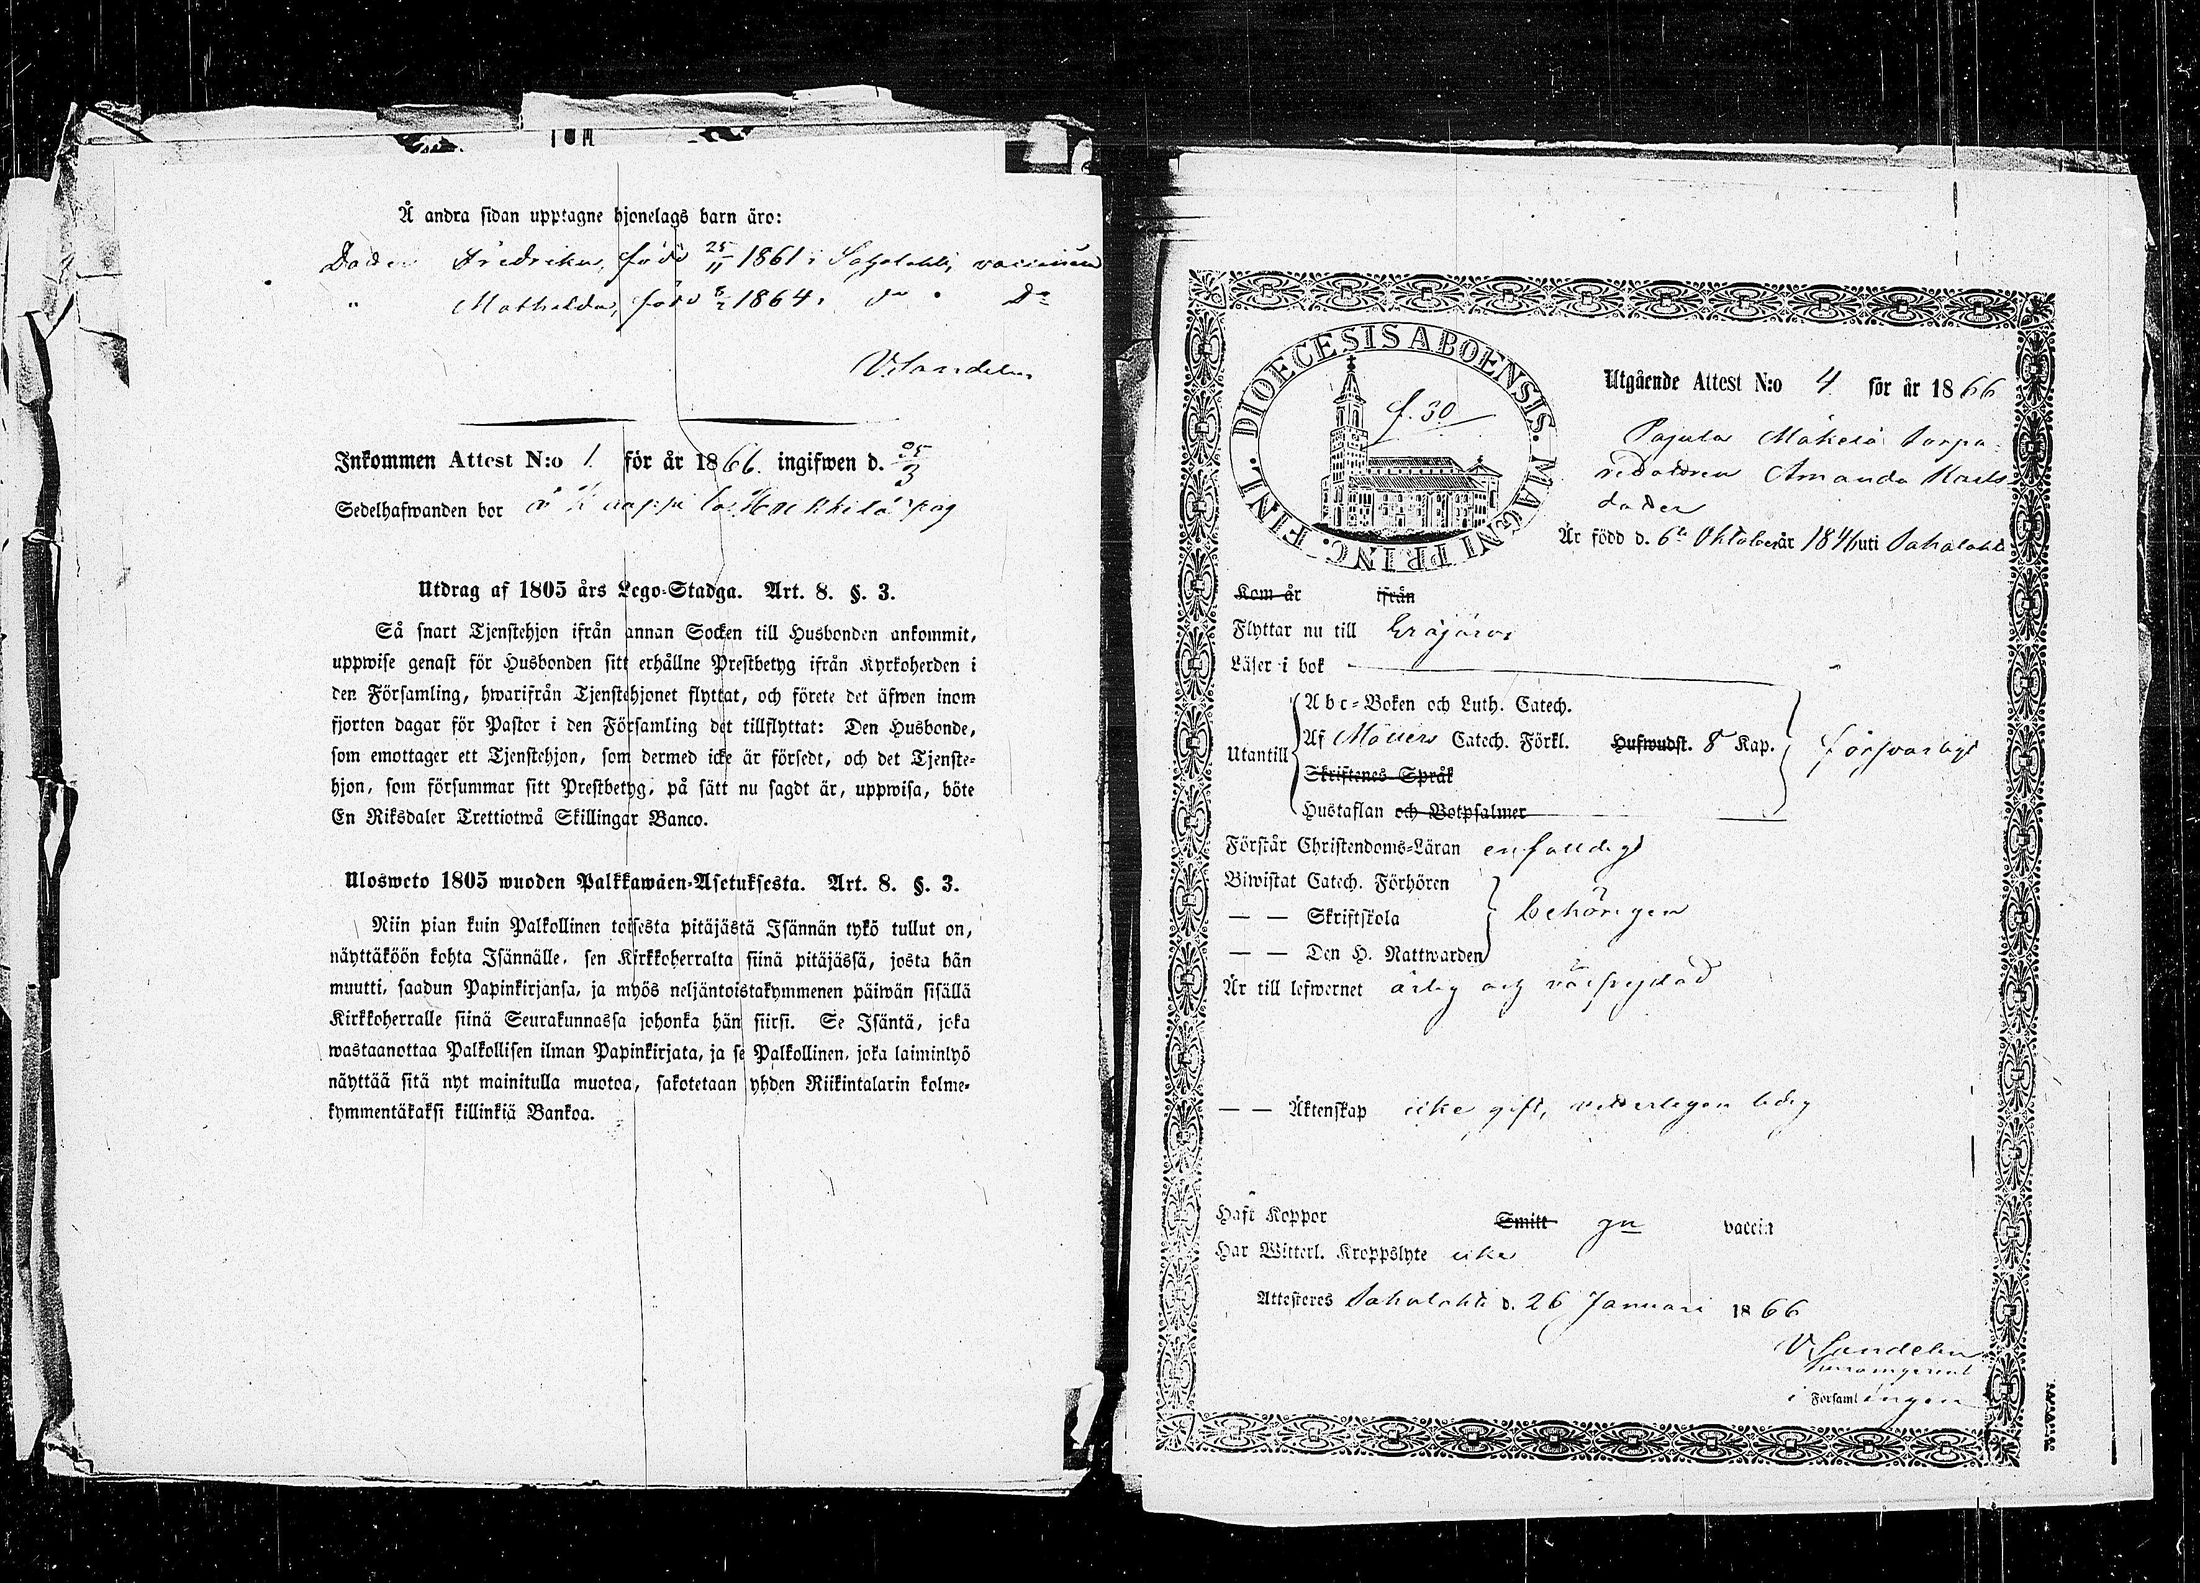 Å andra sidan upptagne hjonelags barn äro:
Dotter Fredrika, född 25/11 1861 i Sahalahti, vaccinerad
" Mathilda, född 8/2 1864 i do Do
VSandelin
Inkommen Attest N:o 1. för år 1866. ingifwen d. 25/3
Sedelhafwanden bor å Uoppi Hakkila
Utdrag af 1805 års Lego-Stadga. Art. 8. §. 3.
Så snart Tjenstehjon ifrån annan Socken till Husbonden ankommit,
uppwise genast för Husbonden sitt erhållne Prestbetyg ifrån Kyrkoherden i
den Församling, hwarifrån Tjenstehjonet flyttat, och förete det äfwen inom
fjorton dagar för Pastor i den Församling det tillflyttat: Den Husbonde,
som emottager ett Tjenstehjon, som dermed icke är försedt, och det Tjenste-
hjon, som försummar sitt Prestbetyg, på sätt nu sagdt är, uppwisa, böte
En Riksdaler Trettiotwå Skillingar Banco.
Ulosweto 1805 wuoden Palkkawäen-Asetuksesta. Art. 8. §. 3.
Niin pian kuin Palkollinen toisesta pitäjästä Isännän tykö tullut on,
näyttäköön kohta Isännälle, sen Kirkkoherralta siinä pitäjässä, josta hän
muutti, saadun Papinkirjansa, ja myös neljäntoistakymmenen päiwän sisällä
Kirkkoherralle siinä Seurakunnassa johonka hän siirsi. Se Isäntä, joka
wastaanottaa Palkollisen ilman Papinkirjata, ja se Palkollinen, joka laiminlyö
näyttää sitä nyt mainitulla muotoa, sakotetaan yhden Riikintalarin kolme-
kymmentäkaksi killinkiä Bankoa.
DIOECESIS ABOENSIS. MAGNI PRINC. FINL.
f. 30
Utgående Attest N:o 4. för år 1866
Pajula Mäkelä torpa-
redottren Amanda Karls
dotter
Är född d. 6te Oktober år 1846 uti Sahalahti
Kom år ifrån
Flyttar nu till Eräjärvi
Läser i bok
Utantill
Abc-Boken och Luth. Catech.
Af Möllers Catech. Förkl. Hufwudst. 8 Kap. försvarligt
Skriftenes Språk
Hustaflan och Botpsalmer
Förstår Christendoms-Läran enfaldigt
Biwistat Catech. Förhören
— — Skriftskola behörigen
— — Den H. Nattwarden
Är till lefwernet ärlig och välfrejdad
— — Äktenskap icke gift, vederlegen ledig
Haft Koppor Smitt ja vaccin
Har Witterl. Kroppslyte icke
Attesteras Sahalahti d. 26 Januari 1866
VSandelin
i Församlingen